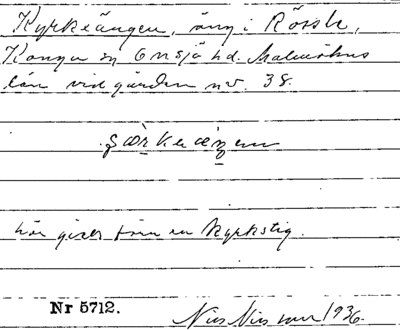 Kyrkeängen, äng i Rössle,
Konga sn Onsjö hd. Malmöhus
län vid gården nr. 38.
här giver förr en Kyrkstig.
Nr 5712.
Nils Nilsson 1936.